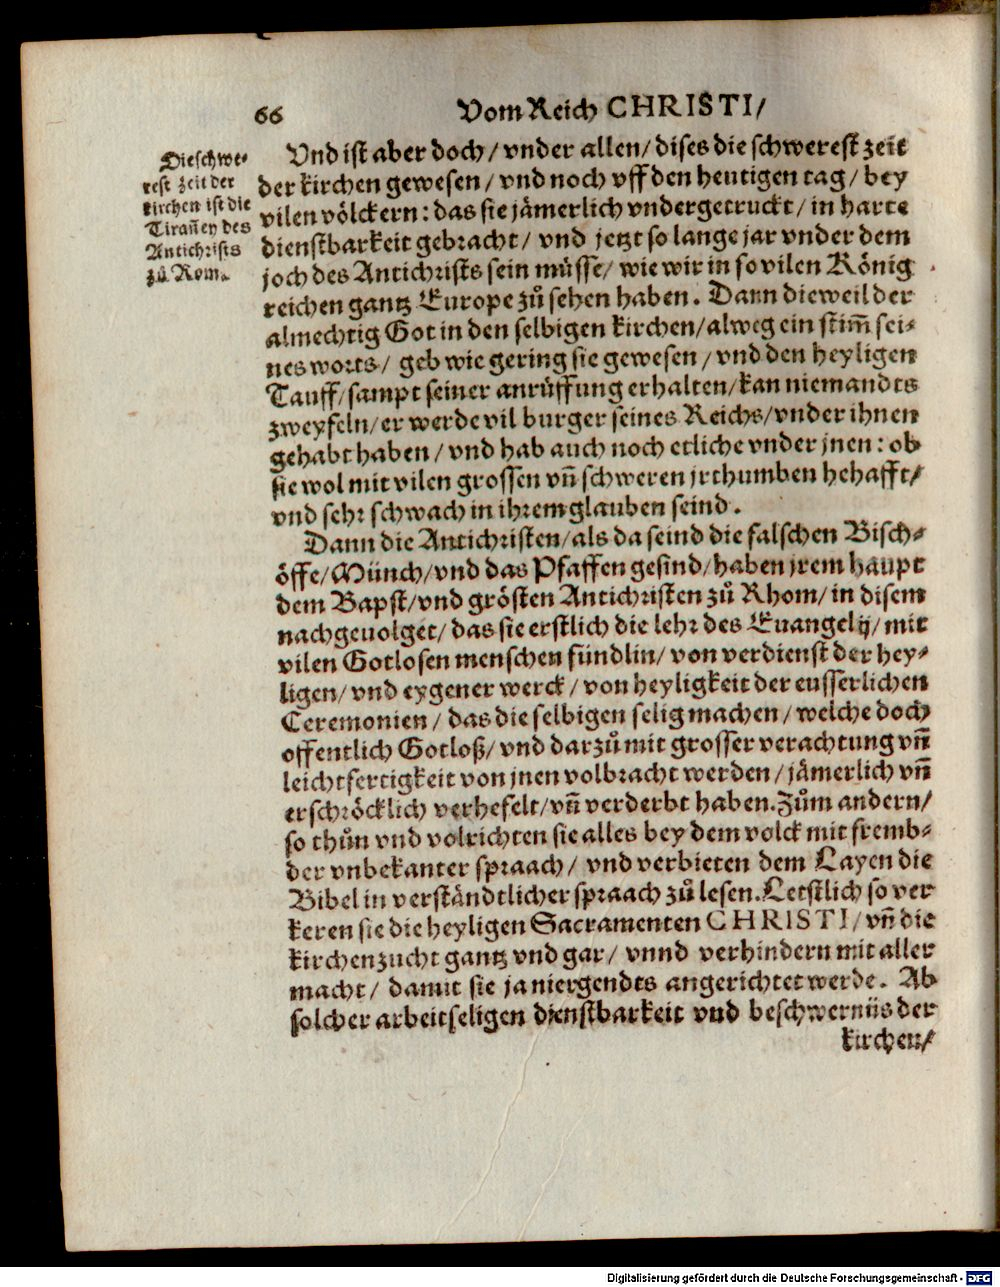 66
Vom Reich CHRISTI/
Die schwe-
rest zeit der
kirchen ist die
Tirañey des
Antichrists
zů Rom.
Vnd ist aber doch/ vnder allen/ dises die schwerest zeit
der kirchen gewesen/ vnd noch vff den heutigen tag/ bey
vilen völckern: das sie jämerlich vndergetruckt/ in harte
dienstbarkeit gebracht/ vnd jetzt so lange jar vnder dem
joch des Antichrists sein müsse/ wie wir in so vilen König
reichen gantz Europe zů sehen haben. Dann dieweil der
almechtig Got in den selbigen kirchen/ alweg ein stim̃ sei-
nes worts/ geb wie gering sie gewesen/ vnd den heyligen
Tauff/ sampt seiner anrüffung erhalten/ kan niemandts
zweyfeln/ er werde vil burger seines Reichs/ vnder ihnen
gehabt haben/ vnd hab auch noch etliche vnder jnen: ob
sie wol mit vilen grossen vñ schweren jrthumben hehafft/
vnd sehr schwach in ihrem glauben seind.
Dann die Antichristen/ als da seind die falschen Bisch-
öffe/ Münch/ vnd das Pfaffen gesind/ haben jrem haupt
dem Bapst/ vnd grösten Antichristen zů Rhom/ in disem
nachgeuolget/ das sie erstlich die lehr des Euangelij/ mit
vilen Gotlosen menschen fündlin/ von verdienst der hey-
ligen/ vnd eygener werck/ von heyligkeit der eusserlichen
Ceremonien/ das die selbigen selig machen/ welche doch
offentlich Gotloß/ vnd darzů mit grosser verachtung vñ
leichtfertigkeit von jnen volbracht werden/ jämerlich vñ
erschröcklich verhefelt/ vñ verderbt haben. Zům andern/
so thůn vnd volrichten sie alles bey dem volck mit fremb-
der vnbekanter spraach/ vnd verbieten dem Layen die
Bibel in verständtlicher spraach zů lesen. Letstlich so ver
keren sie die heyligen Sacramenten CHRISTI/ vñ die
kirchenzucht gantz vnd gar/ vnnd verhindern mit aller
macht/ damit sie ja niergendts angerichtet werde. Ab
solcher arbeitseligen dienstbarkeit vnd beschwernüs der
kirchen/
Digitalisierung gefördert durch die Deutsche Forschungsgemeinschaft - DFG